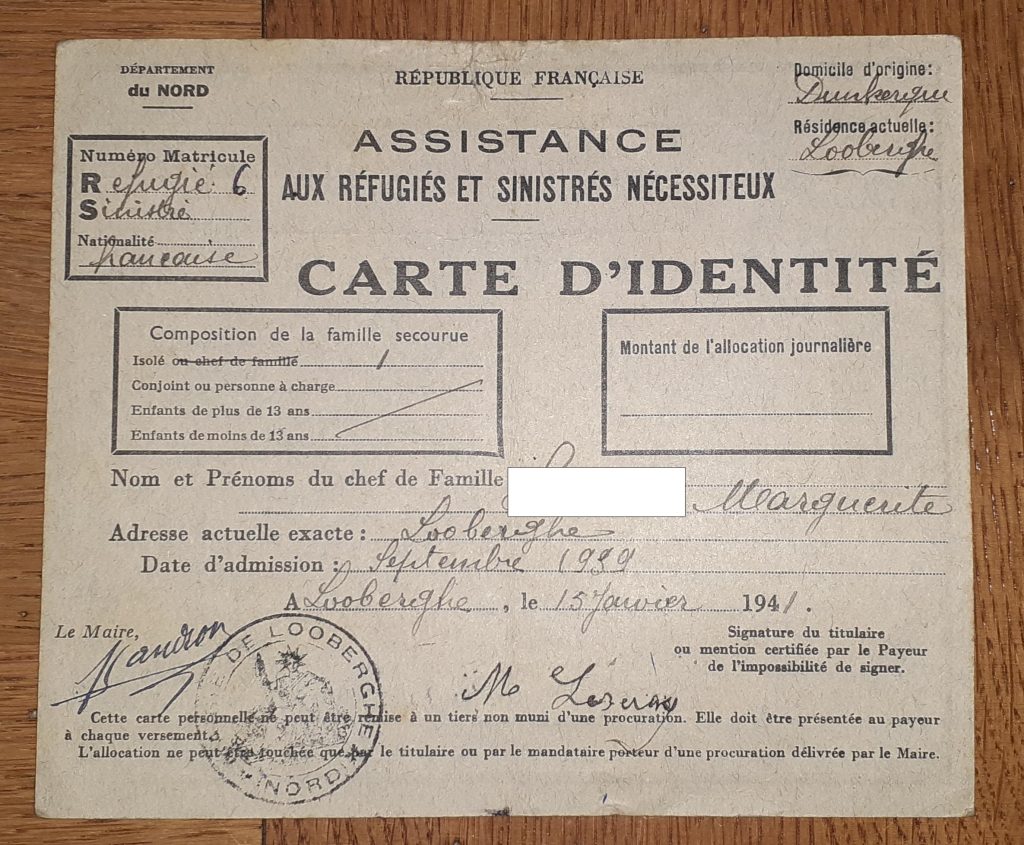 DÉPARTEMENT
du NORD
RÉPUBLIQUE FRANÇAISE
Domicile d'origine:
Dunkerque
Résidence actuelle:
Looberghe
ASSISTANCE
AUX RÉFUGIÉS ET SINISTRÉS NÉCESSITEUX
Numéro Matricule
Réfugié 6
Sinistré
Nationalité
française
CARTE D'IDENTITÉ
Composition de la famille secourue
Isolé ou chef de famille 1
Conjoint ou personne à charge
Enfants de plus de 13 ans
Enfants de moins de 13 ans
Montant de l'allocation journalière
Nom et Prénoms du chef de Famille
Marguerite
Adresse actuelle exacte: Looberghe
Date d'admission: Septembre 1939
A Looberghe, le 15 Janvier 1941.
Le Maire,
Signature du titulaire
ou mention certifiée par le Payeur
de l'impossibilité de signer.
DE LOOBERGHE
NORD
M
Cette carte personnelle ne peut être remise à un tiers non muni d'une procuration. Elle doit être présentée au payeur
à chaque versement.
L'allocation ne peut être touchée que par le titulaire ou par le mandataire porteur d'une procuration délivrée par le Maire.